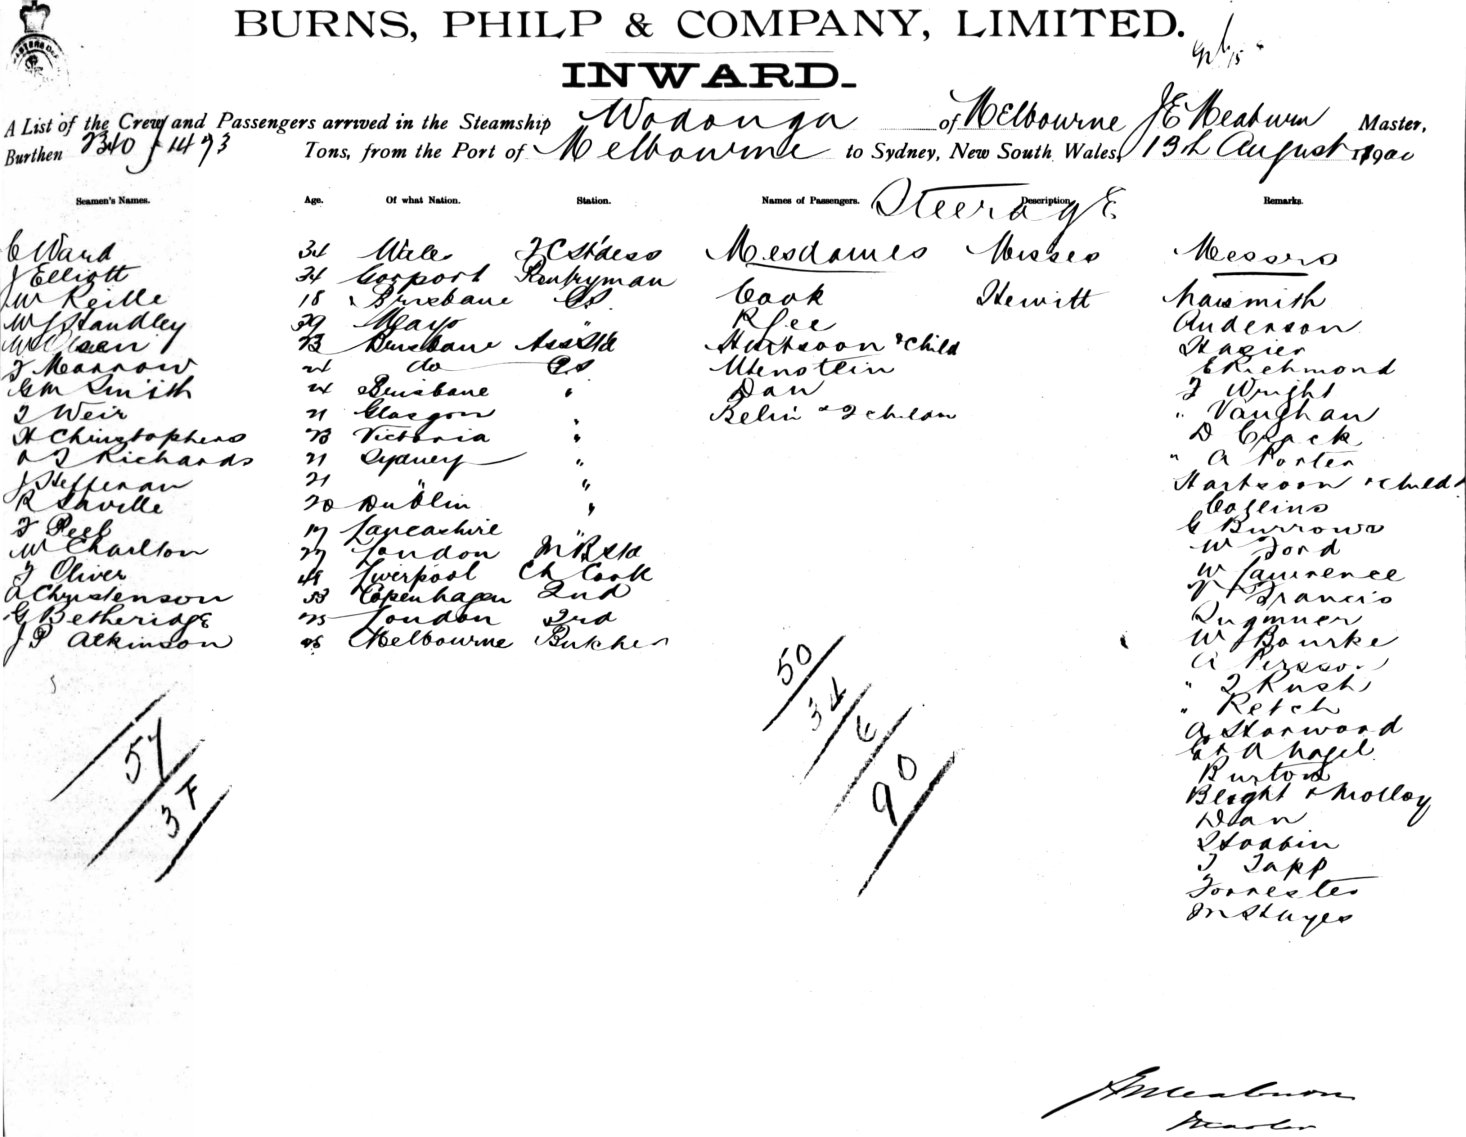 BURNS, PHILP & COMPANY, LIMITED.
INWARD.
A List of the Crew and Passengers arrived in the Steamship Wodonga of Melbourne J E Meaburn Master,
Burthen 2340 / 1493 Tons, from the Port of Melbourne to Sydney, New South Wales, 13th August 1900
Seamen's Names. Age. Of what Nation. Station. Names of Passengers. Steerage Description. Remarks.
C Ward 34 Wales F C St'dess Mesdames Misses Messrs
J Elliott 34 Gosport Pantryman
W Keille 18 Brisbane GS Cook Hewitt Naismith
W J Handley 29 Mayo " R Lee Anderson
W Olsen 23 Brisbane Ass Std Hartsoon & child Hazier
F Marrow 24 do GS Utenstein E Richmond
G M Smith 24 Brisbane " Dan F Wright
J Weir 21 Glasgow " Belin & 2 childn " Vaughan
H Christophers 23 Victoria " D Crack
A J Richards 21 Sydney " " A Porter
J Heffernan 21 " " Hartsoon & child
R Saville 20 Dublin " Collins
F Peel 17 Lancashire " G Burrows
W Charlton 27 London M R Std W Ford
F Oliver 48 Liverpool Ch Cook W Lawrence
A Christenson 33 Copenhagen 2nd Francis
G Betheridge 25 London 3rd
J P Atkinson Melbourne Butcher W Bourke
A Persson
" J Rush
" Retch
A Starwood
G & A Nagel
Burton
Bleight & Molloy
Dan
Stobbin
J Tapp
Forrester
M Hayes
50
34
6
90
57
37
J E Meaburn
Master